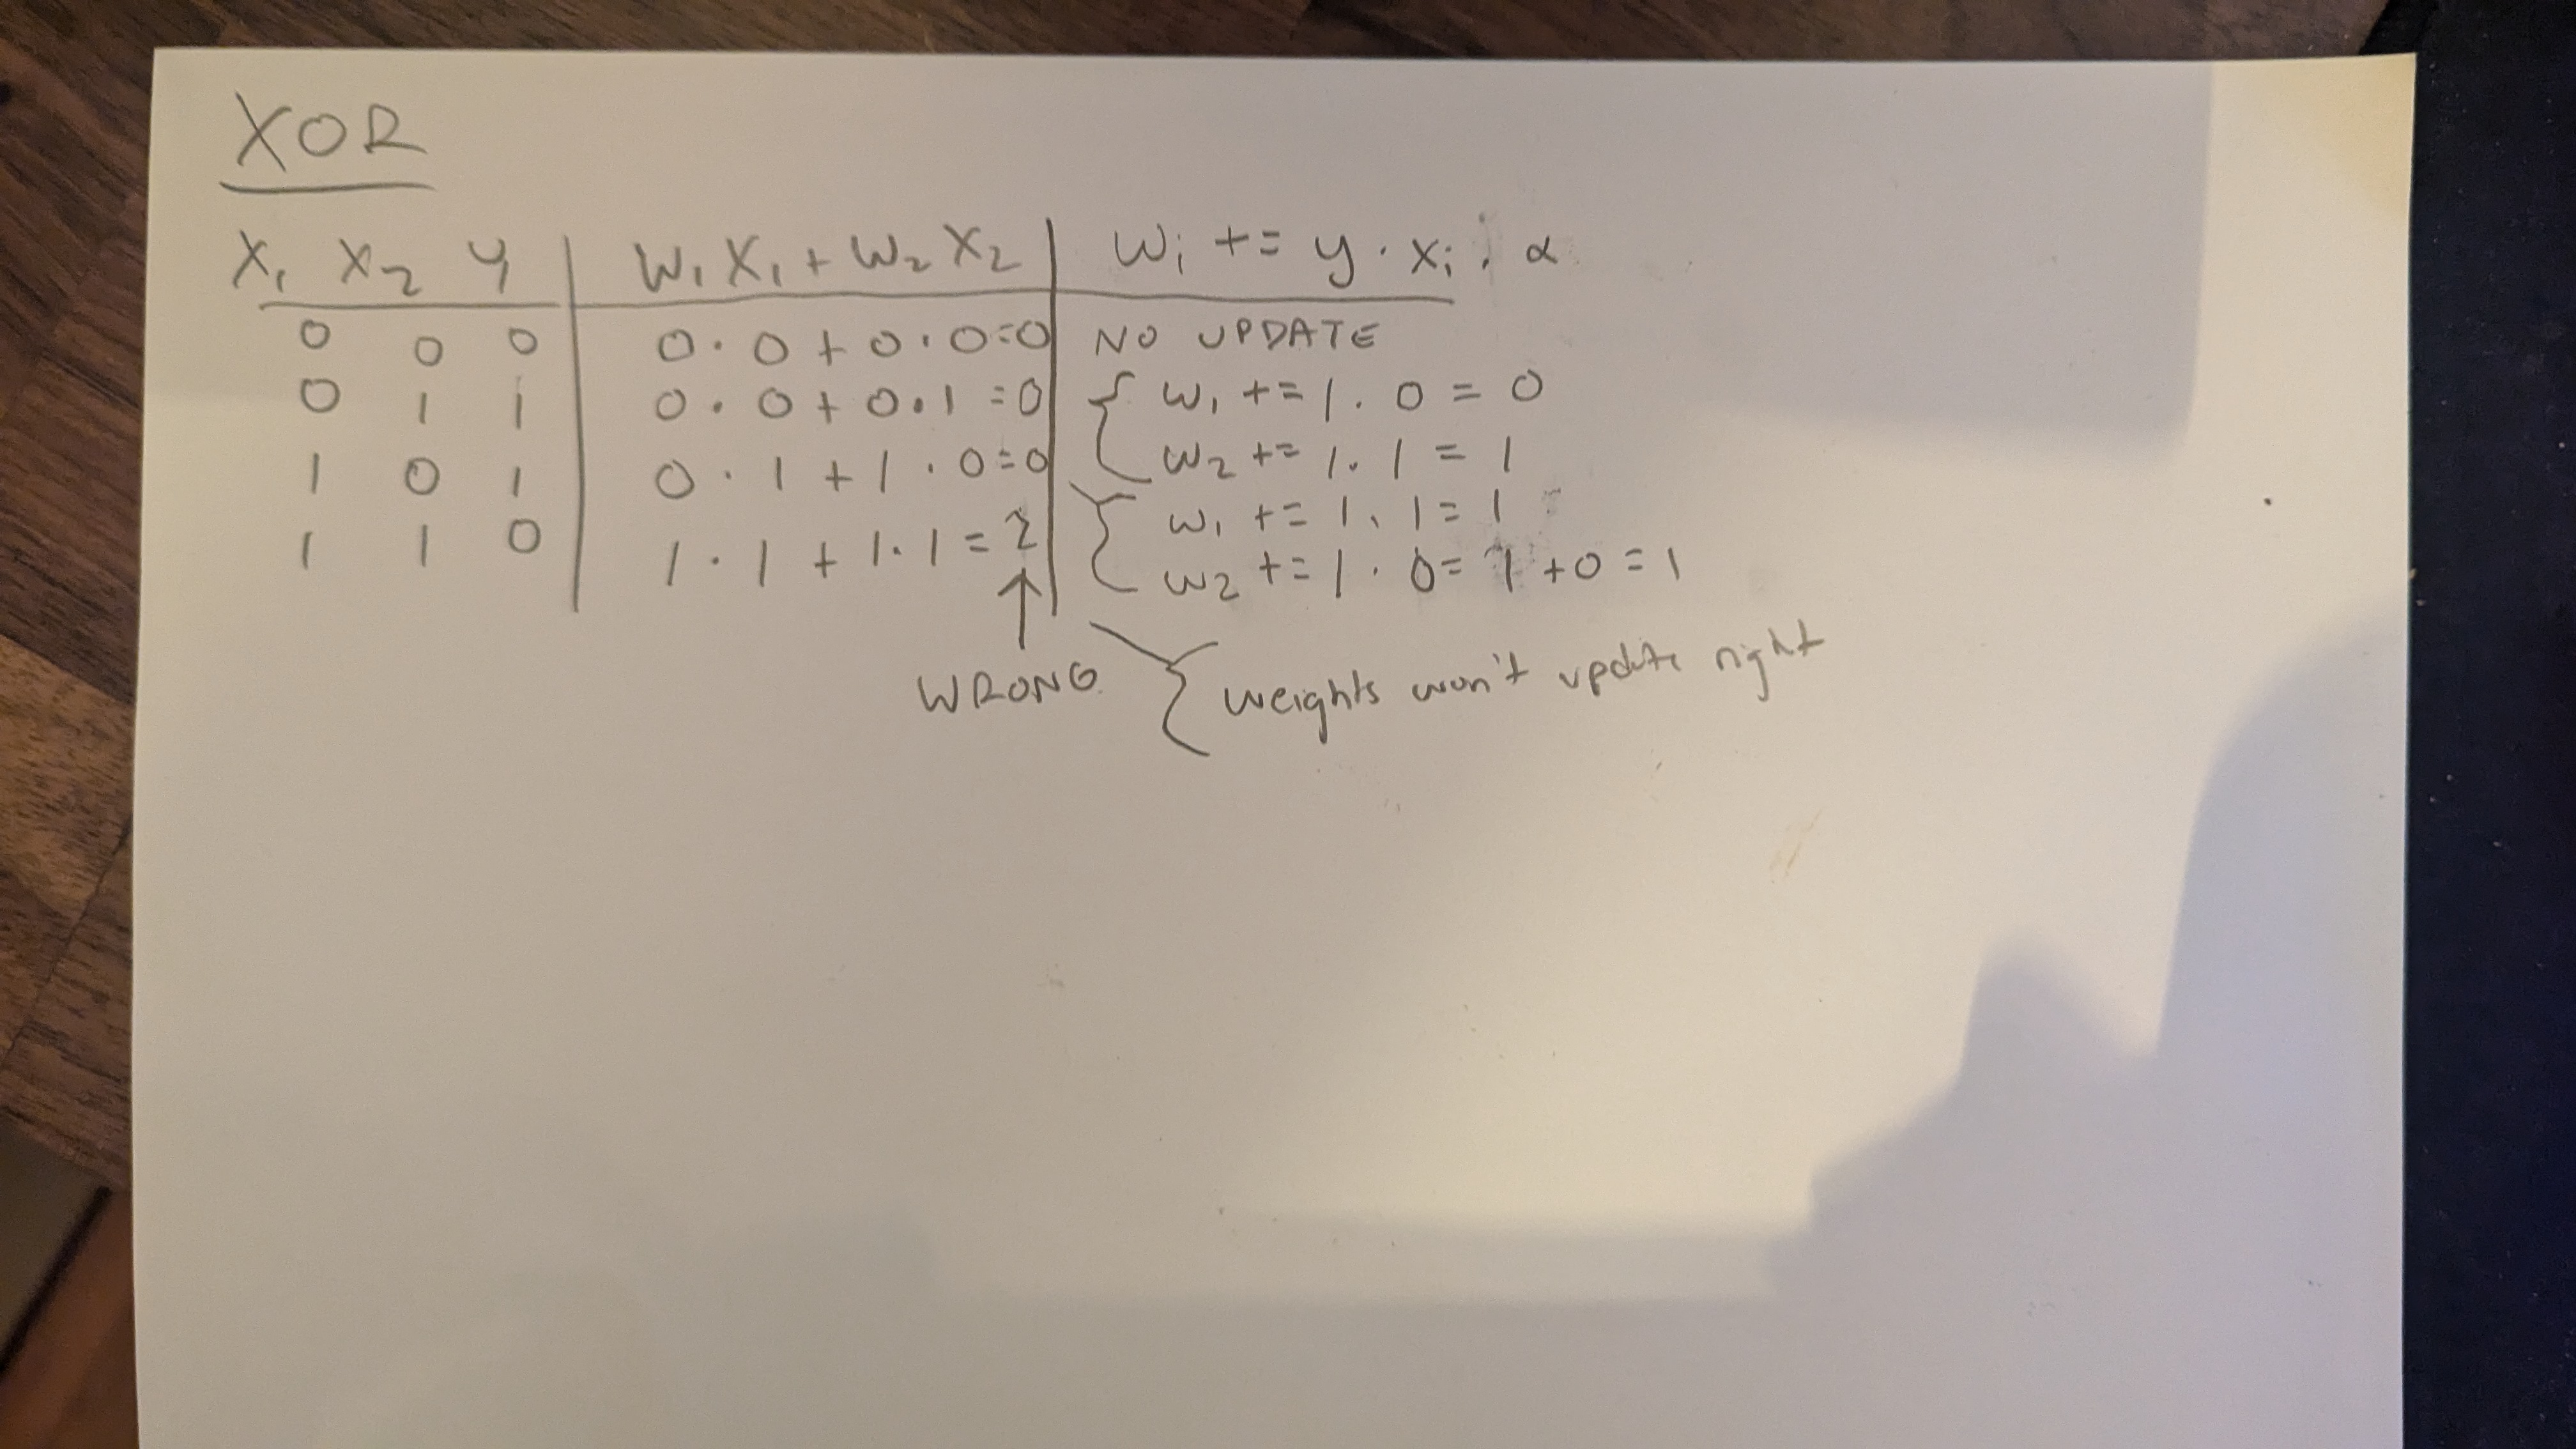 XOR
X₁ X₂ Y W₁X₁ + W₂X₂ Wᵢ += y · xᵢ · α
0 0 0 0 · 0 + 0 · 0 = 0 NO UPDATE
0 1 1 0 · 0 + 0 · 1 = 0 { W₁ += 1 · 0 = 0
W₂ += 1 · 1 = 1
1 0 1 0 · 1 + 1 · 0 = 0 { W₁ += 1 · 1 = 1
W₂ += 1 · 0 = 1 + 0 = 1
1 1 0 1 · 1 + 1 · 1 = 2
↑
WRONG { weights won't update right